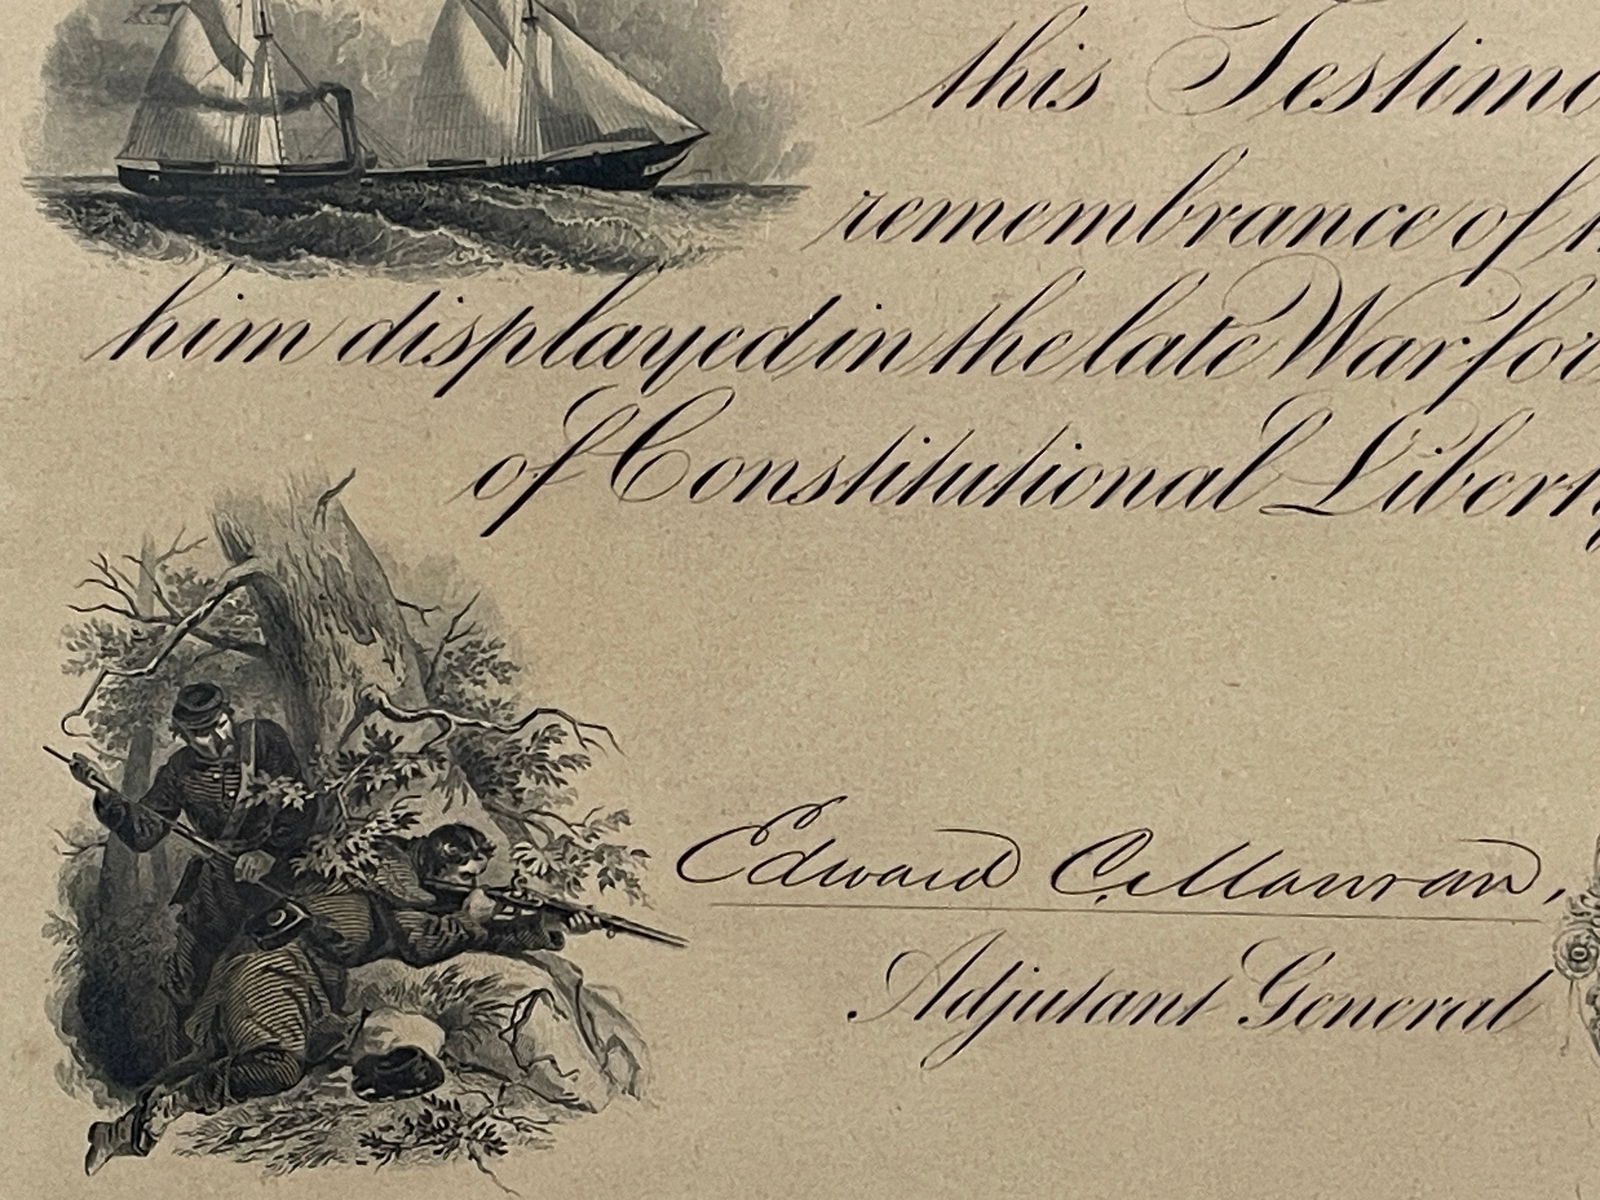 this Testimo
remembrance of
him displayed in the late War for
of Constitutional Liberty
Edward C. Mauran,
Adjutant General